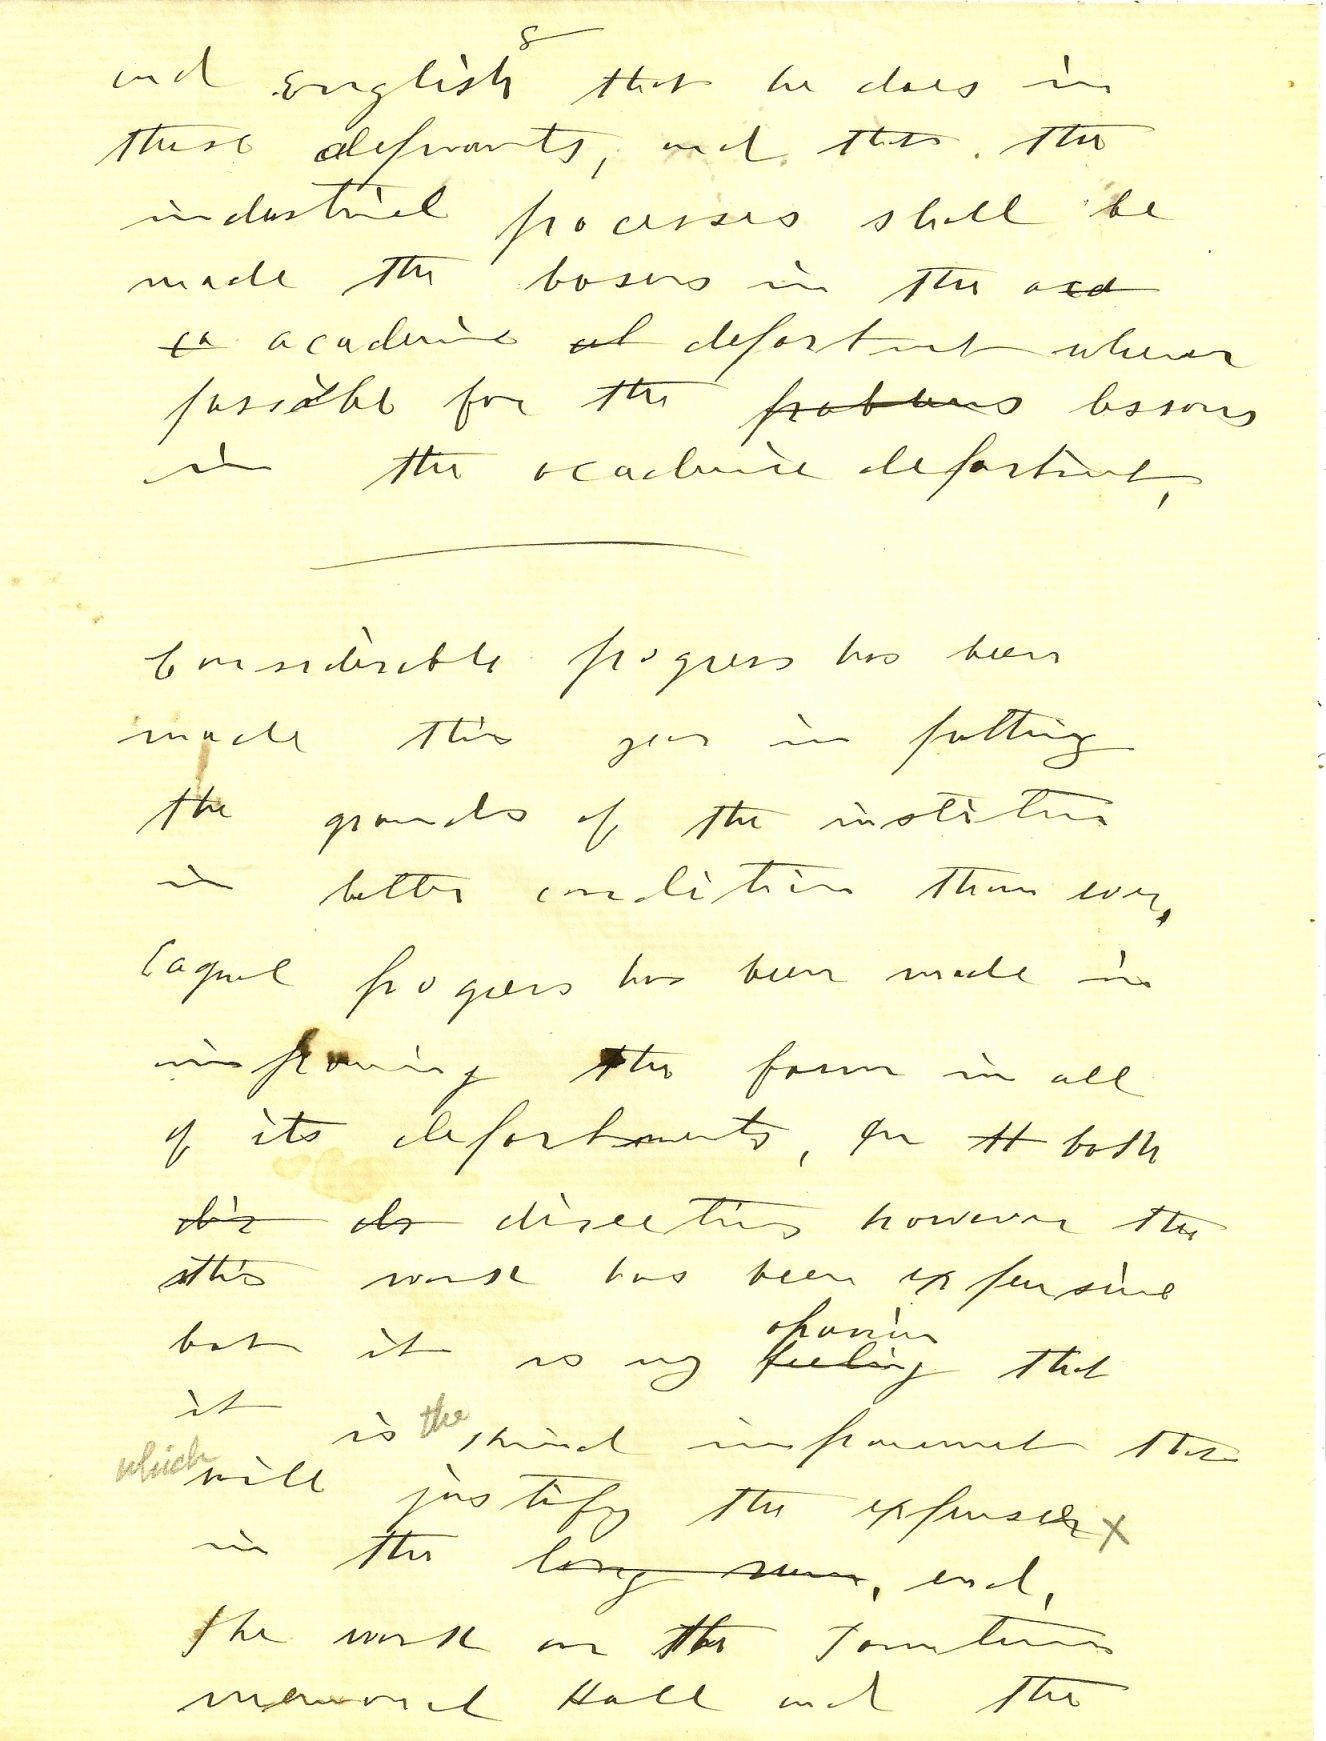 8
and English that he does in
these departments, and that the
industrial processes shall be
made the basis in the acd
ca academic at department wherever
possible for the problems lessons
in the academic department,
Considerable progress has been
made this year in putting
the grounds of the institution
in better condition than ever,
Eaqual progress has been made in
improving the farm in all
of its departments, In tt both
dir ds directions however the
this work has been expensive
but it is my feeling opinion that
it is the kind improvement that
which will justify the expense x
in the long run, end,
The work on the Tompkins
memorial Hall and the